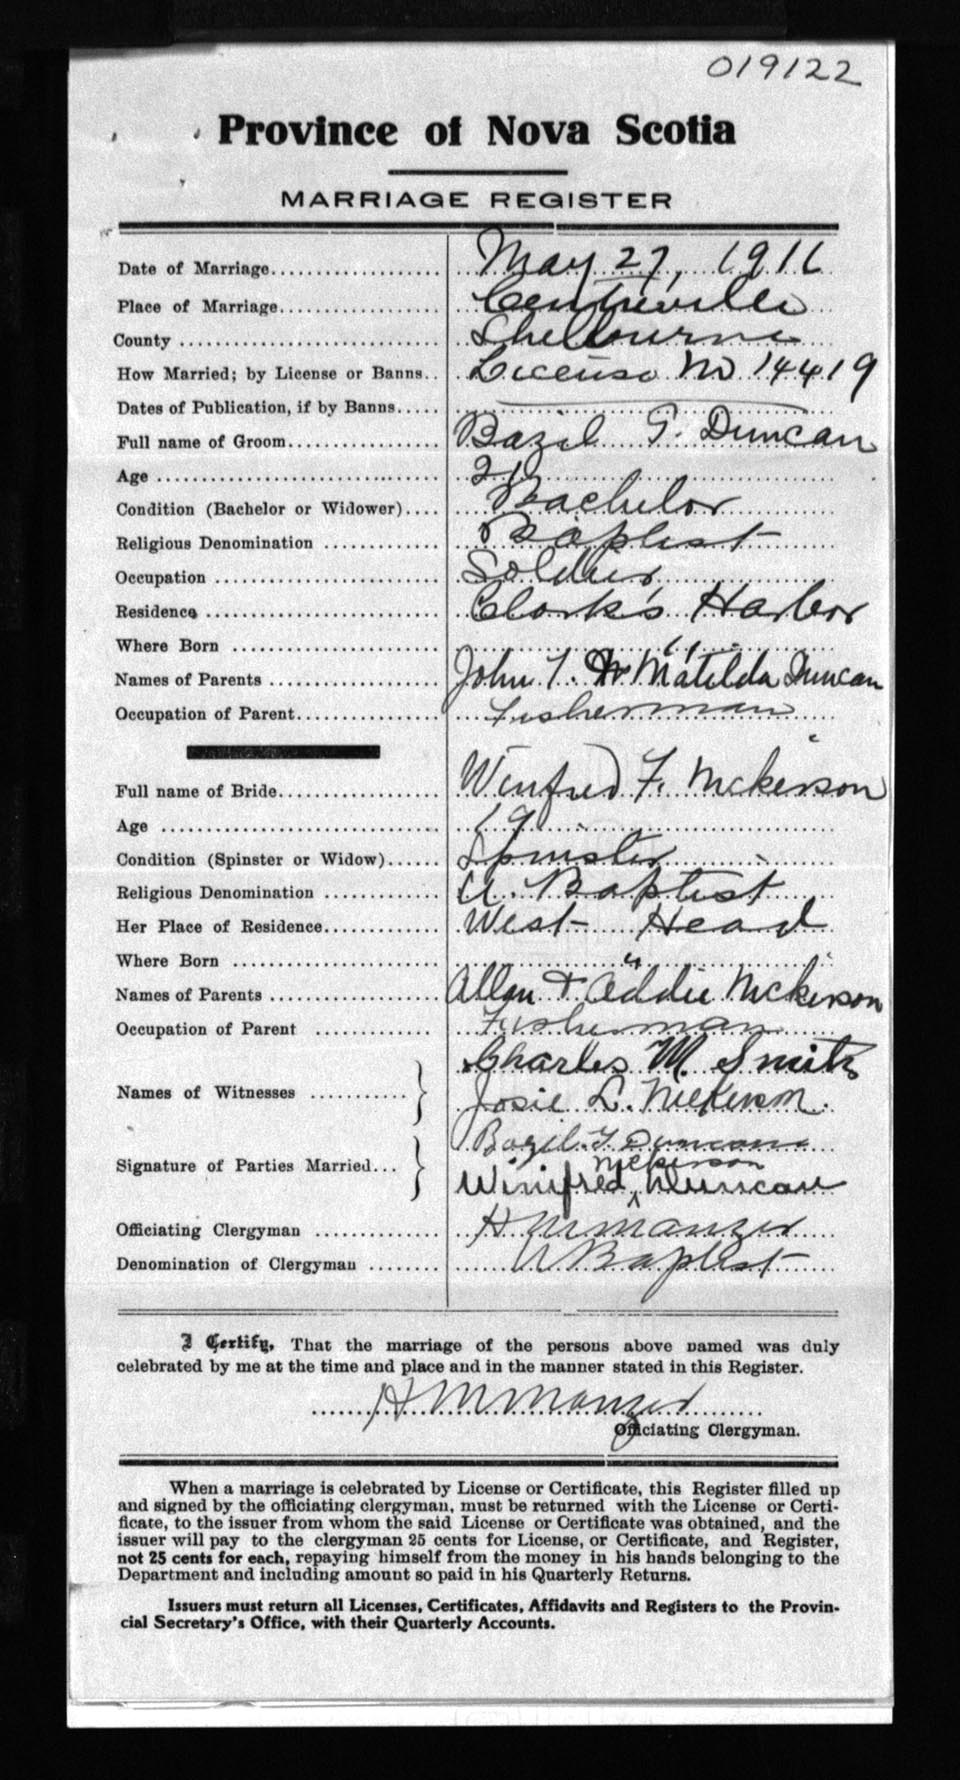 019122
Province of Nova Scotia
MARRIAGE REGISTER
Date of Marriage.................... May 27, 1916
Place of Marriage................... Centreville
County ............................ Shelburne
How Married; by License or Banns.. License No 14419
Dates of Publication, if by Banns.....
Full name of Groom.................. Bazil T. Duncan
Age ............................... 21
Condition (Bachelor or Widower).... Bachelor
Religious Denomination ............. Baptist
Occupation ......................... Soldier
Residence .......................... Clark's Harbor
Where Born ........................ " "
Names of Parents ................... John T. & Matilda Duncan
Occupation of Parent................ Fisherman
Full name of Bride.................. Winfred F. Nickerson
Age ............................... 19
Condition (Spinster or Widow)...... Spinster
Religious Denomination ............. U. Baptist
Her Place of Residence.............. West Head
Where Born ........................ "
Names of Parents ................... Allan & Addie Nickerson
Occupation of Parent ............... Fisherman
Names of Witnesses ........... } Charles M. Smith
Josie L. Nickerson.
Signature of Parties Married... } Bazil T Duncan
Nickerson
Winifred ^ Duncan
Officiating Clergyman .............. H M Manzer
Denomination of Clergyman ........ U Baptist
I Certify, That the marriage of the persons above named was duly
celebrated by me at the time and place and in the manner stated in this Register.
H M Manzer
Officiating Clergyman.
When a marriage is celebrated by License or Certificate, this Register filled up
and signed by the officiating clergyman, must be returned with the License or Certi-
ficate, to the issuer from whom the said License or Certificate was obtained, and the
issuer will pay to the clergyman 25 cents for License, or Certificate, and Register,
not 25 cents for each, repaying himself from the money in his hands belonging to the
Department and including amount so paid in his Quarterly Returns.
Issuers must return all Licenses, Certificates, Affidavits and Registers to the Provin-
cial Secretary's Office, with their Quarterly Accounts.